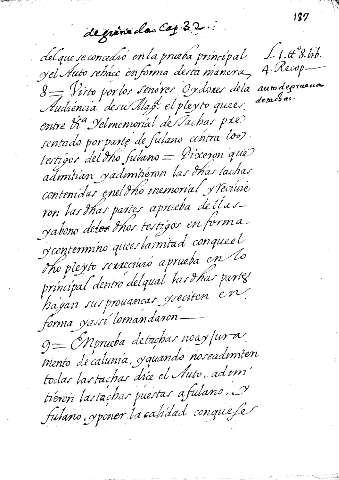 187
de prueba Cap. 32.
del que se concedio en la prueba principal
y el Auto se hace en forma desta manera
L. 1. tt.º 8. lib.
4. Recop.
8 = Visto por los señores Oydores de la
auto de prueua
de tachas.
Audiencia de su Mag.d el pleyto que es
entre &.ª Y el memorial de Tachas pre
sentado por parte de fulano contra los
testigos del dho fulano = Dixeron que
admitian y admitieron las dhas tachas
contenidas en el dho memorial y reciuie
ron las dhas partes a prueba de ellas
y abono de los dhos testigos en forma
y con termino que es la mitad con que el
dho pleyto se rreciuio a prueba en lo
principal dentro del qual las dhas partes
hagan sus prouanças y se citen en
forma y assi lo mandaron
9 = En prueba de tachas no ay jura
mento de calunia, y quando no se admiten
todas las tachas dice el Auto. admi
tieron las tachas puestas a fulano. y
fulano, y poner la calidad con que se